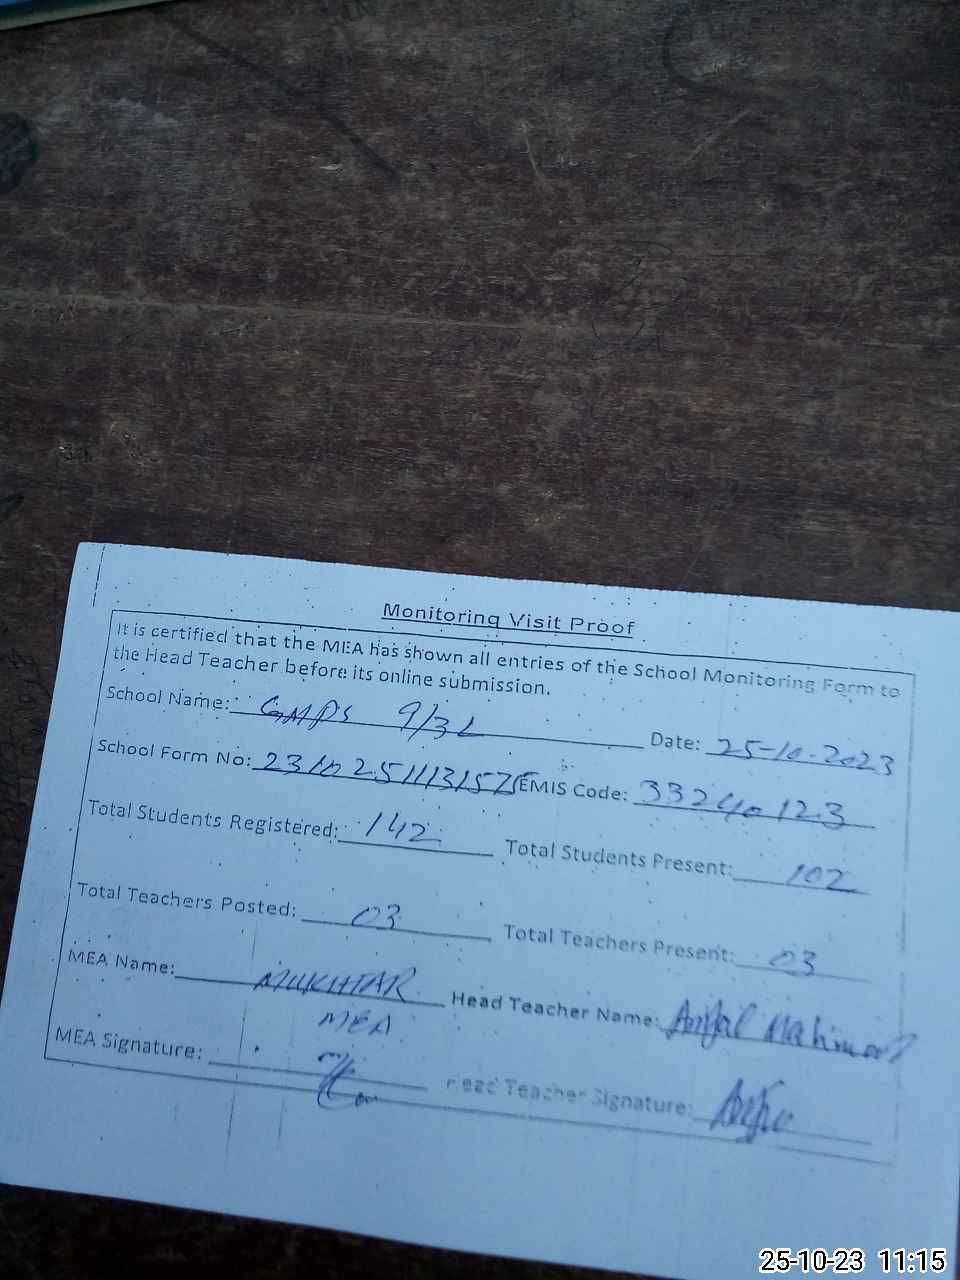 Monitoring Visit Proof
It is certified that the MEA has shown all entries of the School Monitoring Form to
the Head Teacher before its online submission.
School Name: GMPS 9/3L Date: 25-10-2023
School Form No: EMIS Code: 33240123
Total Students Registered: 142 Total Students Present: 102
Total Teachers Posted: 03 Total Teachers Present: 03
MEA Name: MUKHTAR Head Teacher Name:
MEA
MEA Signature: Head Teacher Signature:
25-10-23 11:15